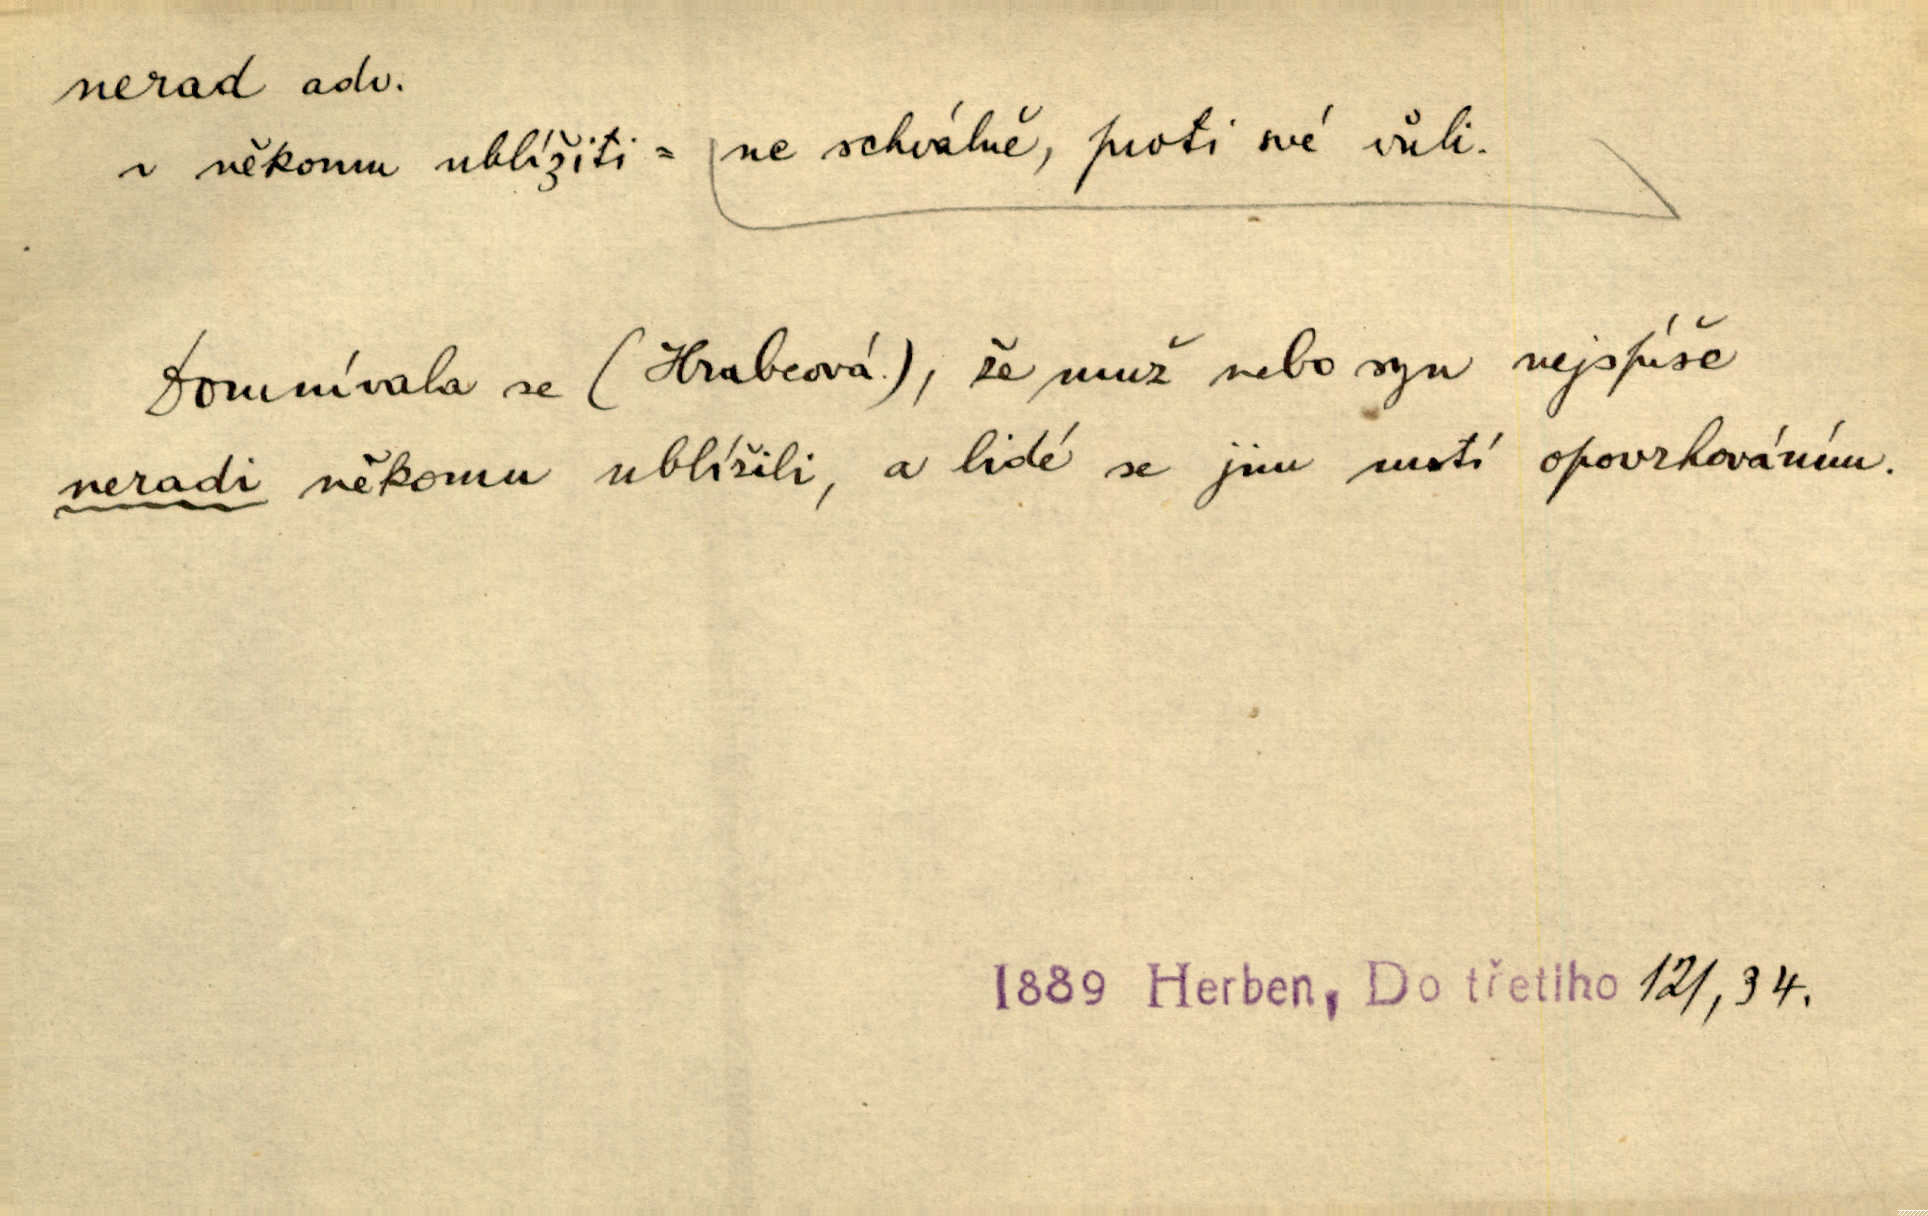 nerad adv.
~ někomu ublížiti = ne schválně, proti své vůli.
Domnívala se (Hrabcová.), že muž nebo syn nejspíše
neradi někomu ublížili, a lidé se jim mstí opovrhováním.
1889 Herben, Do třetího 12/, 34.